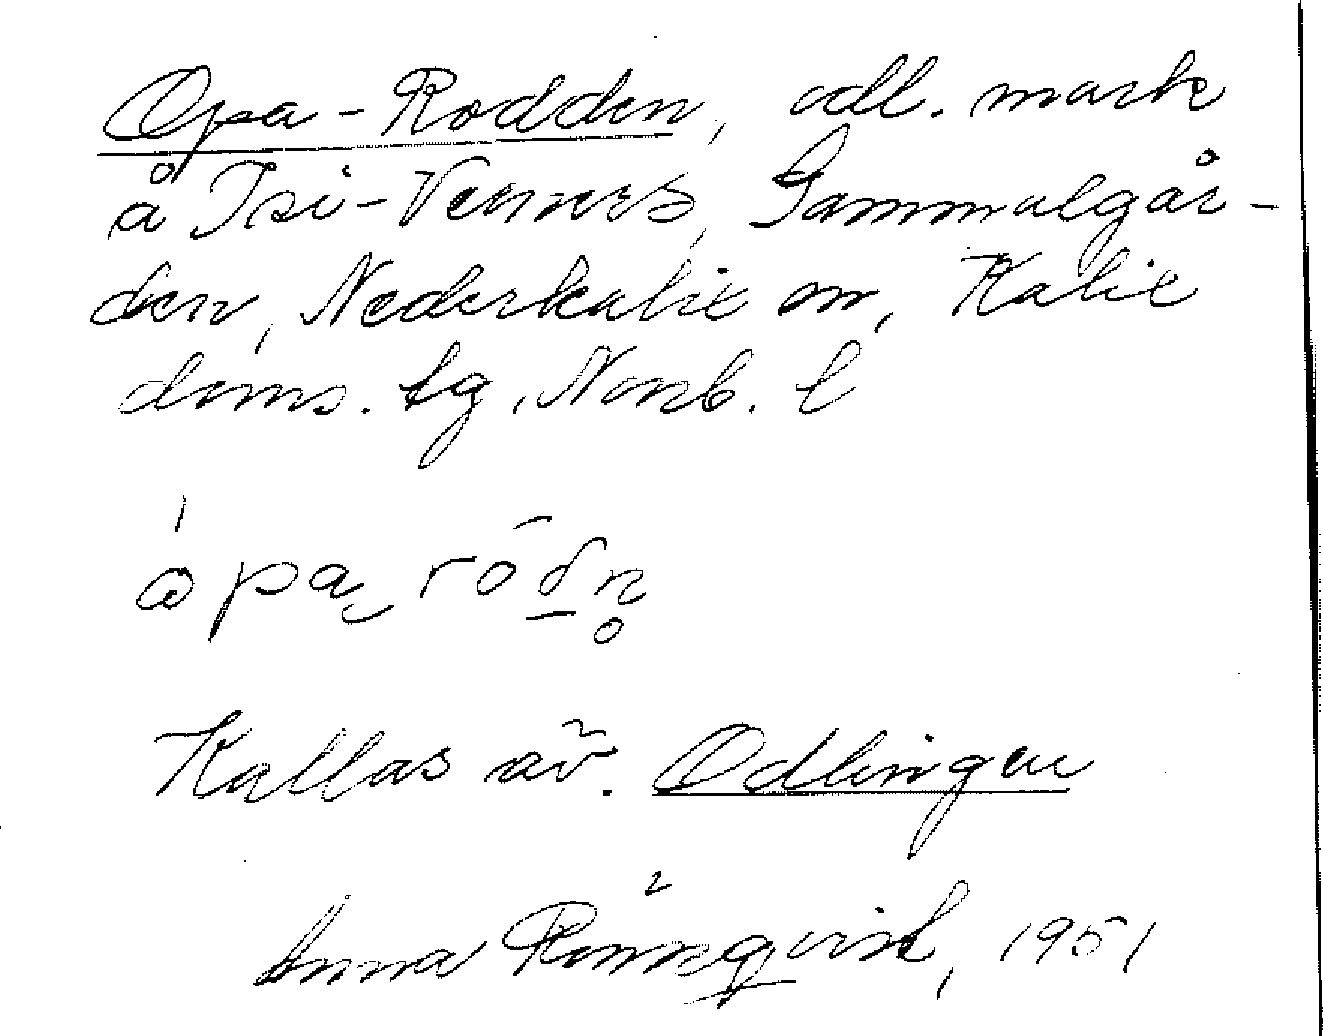 Opa-Rodden, odl. mark
å Isi-Verners, Gammalgår-
den, Nederkalix sn, Kalix
doms. tg, Norrb. l
Kallas äv. Odlingen
Anna Rönnqvist, 1951